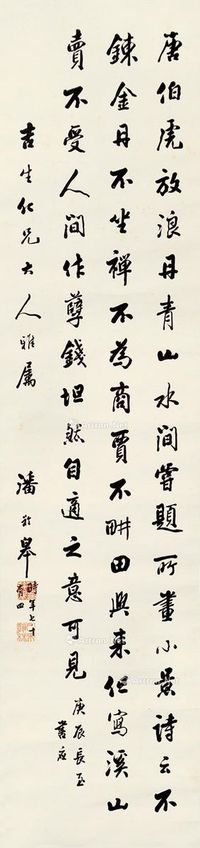 唐伯虎放浪丹青山水間嘗題所畫小景詩云不
鍊金丹不坐禪不為商賈不畊田興來但寫溪山
賣不受人間作孽錢坦然自適之意可見
庚辰長至
書應
吉生仁兄大人雅屬
潘齡皋
時年七十
有四